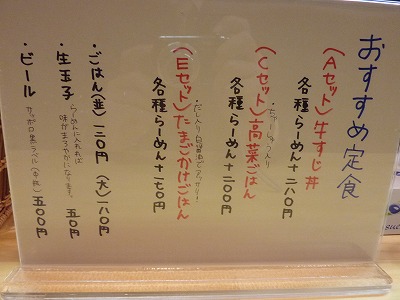 おすすめ定食
(Aセット)牛すじ丼
各種らーめん+二八〇円
(Cセット)高菜ごはん
各種らーめん+二〇〇円
(Eセット)たまごかけごはん
・だし入り白醤油でアッサリ!
各種らーめん+一七〇円
・ごはん(並)一三〇円(大)一八〇円
・生玉子 五〇円
らーめんに入れれば
味がまろやかになります。
・ビール 五〇〇円
サッポロ黒ラベル(中瓶)